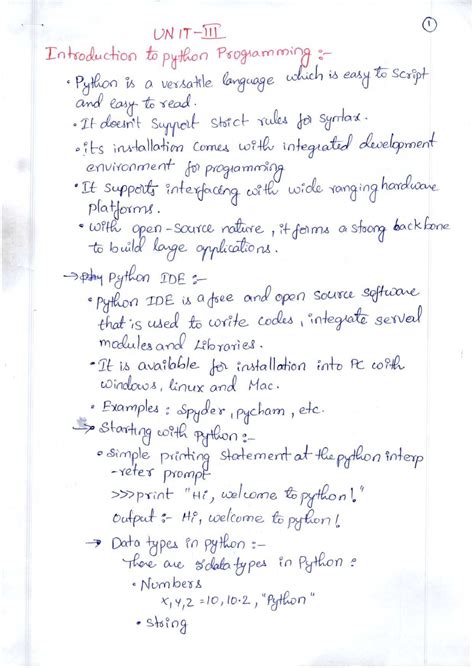 1
UNIT-III
Introduction to python Programming :-
• Python is a versatile language which is easy to script
and easy to read.
• It doesn't support strict rules for syntax.
• its installation comes with integrated development
environment for programming
• It supports interfacing with wide ranging hardware
platforms.
• with open-source nature, it forms a strong backbone
to build large applications.
→ Python IDE :-
• Python IDE is a free and open source software
that is used to write codes, integrate serveral
modules and Libraries.
• It is available for installation into PC with
windows, linux and Mac.
• Examples : Spyder, pycham, etc.
→ Starting with Python :-
• simple printing statement at the python interp
-reter prompt
>>> print "Hi, welcome to python!"
output :- Hi, welcome to python!
→ Data types in python :-
There are datatypes in Python :
• Numbers
x,y,z = 10, 10.2, "Python"
• string